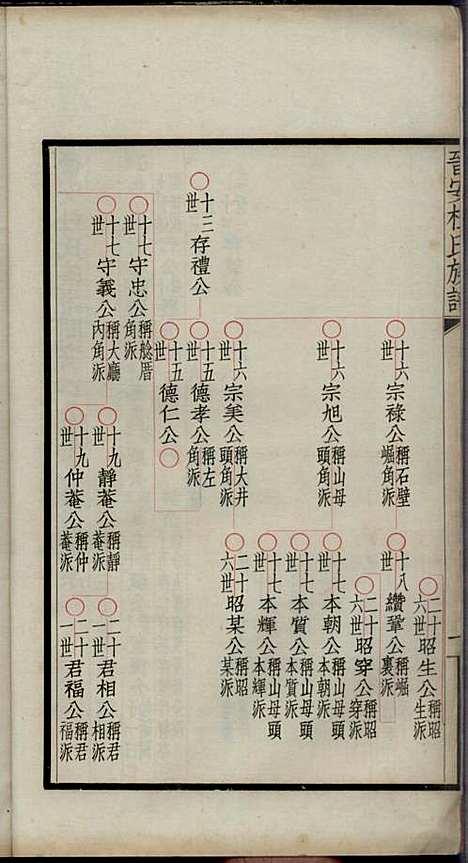 晉安杜氏族譜
一
二十六世昭生公稱昭生派
十六世宗祿公稱石壁崛角派
十八世纘鞏公稱崛裏派
二十六世昭穿公稱昭穿派
十六世宗旭公稱山母頭角派
十七世本朝公稱山母頭本朝派
十七世本質公稱山母頭本質派
十七世本輝公稱山母頭本輝派
十六世宗美公稱大井頭角派
二十六世昭某公稱昭某派
十三世存禮公
十五世德孝公稱左角派
十五世德仁公
十七世守忠公稱舩厝角派
十九世靜菴公稱靜菴派
二十一世君相公稱君相派
十七世守義公稱大廳內角派
十九世仲菴公稱仲菴派
二十一世君福公稱君福派